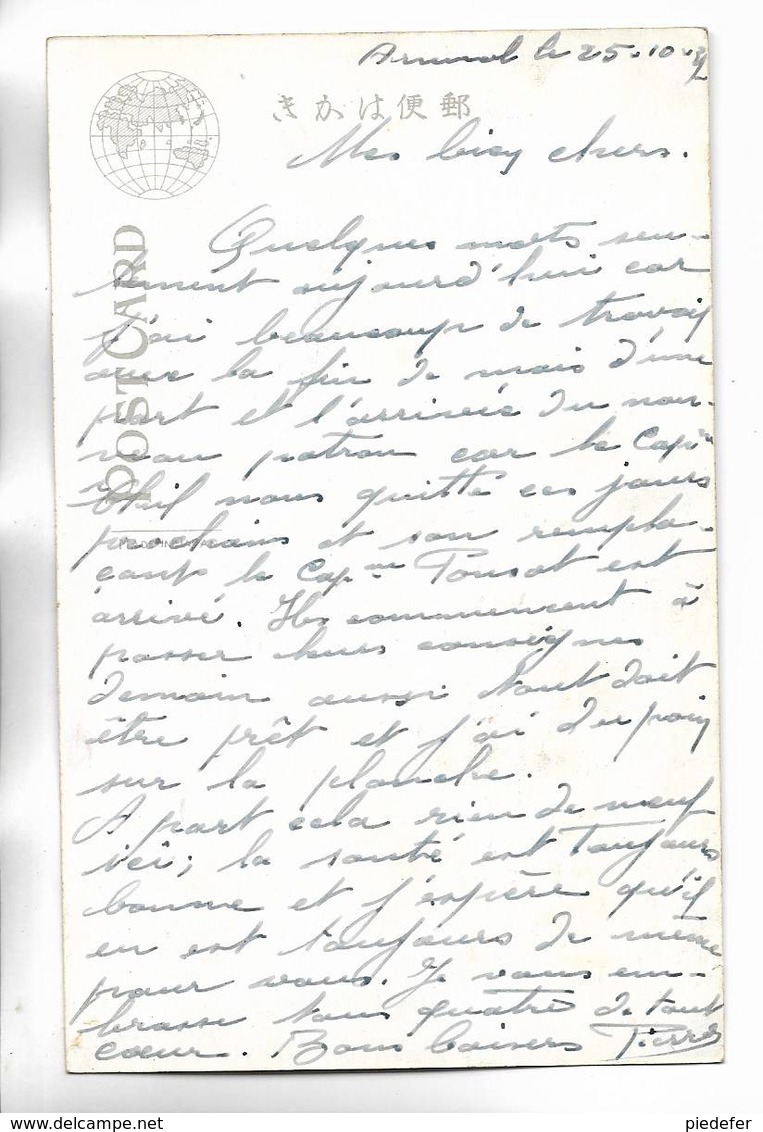 le 25-10-
きかは便郵
Mes bien chers.
POST CARD
Quelques mots seu-
lement aujourd'hui car
j'ai beaucoup de travail
avec la fin de mois d'une
part et l'arrivée du nou-
veau patron car le Capne
nous quitte ces jours
prochains et son rempla-
çant le Capne Pousot est
arrivé. Ils commencent à
passer leurs consignes
demain aussi tout doit
être prêt et j'ai du pain
sur la planche.
A part cela rien de neuf
ici; la santé est toujours
bonne et j'espère qu'il
en est toujours de même
pour vous. Je vous em-
brasse tous quatre de tout
cœur. Bons baisers Pierre
piedefer
www.delcampe.net